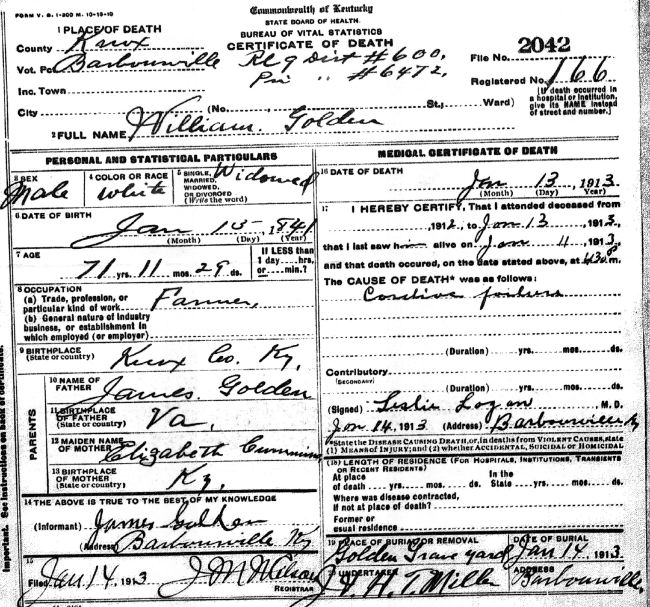 FORM V. S. 1-200 M. 10-15-10
Commonwealth of Kentucky
STATE BOARD OF HEALTH.
BUREAU OF VITAL STATISTICS
CERTIFICATE OF DEATH
1 PLACE OF DEATH
County Knox
Vot. Pct Barbourville
Reg Dist #600.
Pri " #6472.
File No. 2042
Registered No. 166
Inc. Town
City (No. St., Ward)
[If death occurred in a hospital or institution, give its NAME instead of street and number.]
2 FULL NAME William Golden
PERSONAL AND STATISTICAL PARTICULARS
3 SEX Male
4 COLOR OR RACE white
5 SINGLE, MARRIED, WIDOWED, OR DIVORCED (Write the word) Widowed
6 DATE OF BIRTH
Jan 15 1841
(Month) (Day) (Year)
7 AGE
71 yrs. 11 mos. 29 ds.
If LESS than 1 day hrs. or min.?
8 OCCUPATION
(a) Trade, profession, or particular kind of work Farmer,
(b) General nature of industry business, or establishment in which employed (or employer)
9 BIRTHPLACE
(State or country) Knox Co. Ky,
PARENTS
10 NAME OF FATHER James Golden
11 BIRTHPLACE OF FATHER (State or country) Va.
12 MAIDEN NAME OF MOTHER Elizabeth Cummins
13 BIRTHPLACE OF MOTHER (State or country) Ky,
14 THE ABOVE IS TRUE TO THE BEST OF MY KNOWLEDGE
(Informant) James Golden
(Address) Barbourville Ky
15
Filed Jan 14, 1913 J M Wilson
REGISTRAR
MEDICAL CERTIFICATE OF DEATH
16 DATE OF DEATH
Jan 13 1913
(Month) (Day) (Year)
17 I HEREBY CERTIFY, That I attended deceased from
, 1912, to Jan 13, 1913,
that I last saw him alive on Jan 11, 1913,
and that death occured, on the date stated above, at 430 P m.
The CAUSE OF DEATH* was as follows:
(Duration) yrs. mos. ds.
Contributory
(SECONDARY)
(Duration) yrs. mos. ds.
(Signed) Leslie Logan M. D.
Jan 14, 1913 (Address) Barbourville Ky
*State the DISEASE CAUSING DEATH, or, in deaths from VIOLENT CAUSES, state
(1) MEANS OF INJURY; and (2) whether ACCIDENTAL, SUICIDAL or HOMICIDAL
18 LENGTH OF RESIDENCE (FOR HOSPITALS, INSTITUTIONS, TRANSIENTS OR RECENT RESIDENTS)
At place of death yrs. mos. ds. In the State yrs. mos. ds.
Where was disease contracted,
If not at place of death?
Former or usual residence
19 PLACE OF BURIAL OR REMOVAL Golden Grave yard
DATE OF BURIAL Jan 14, 1913
20 UNDERTAKER J. H. T. Miller
ADDRESS Barbourville
Important. See instructions on back of certificate.